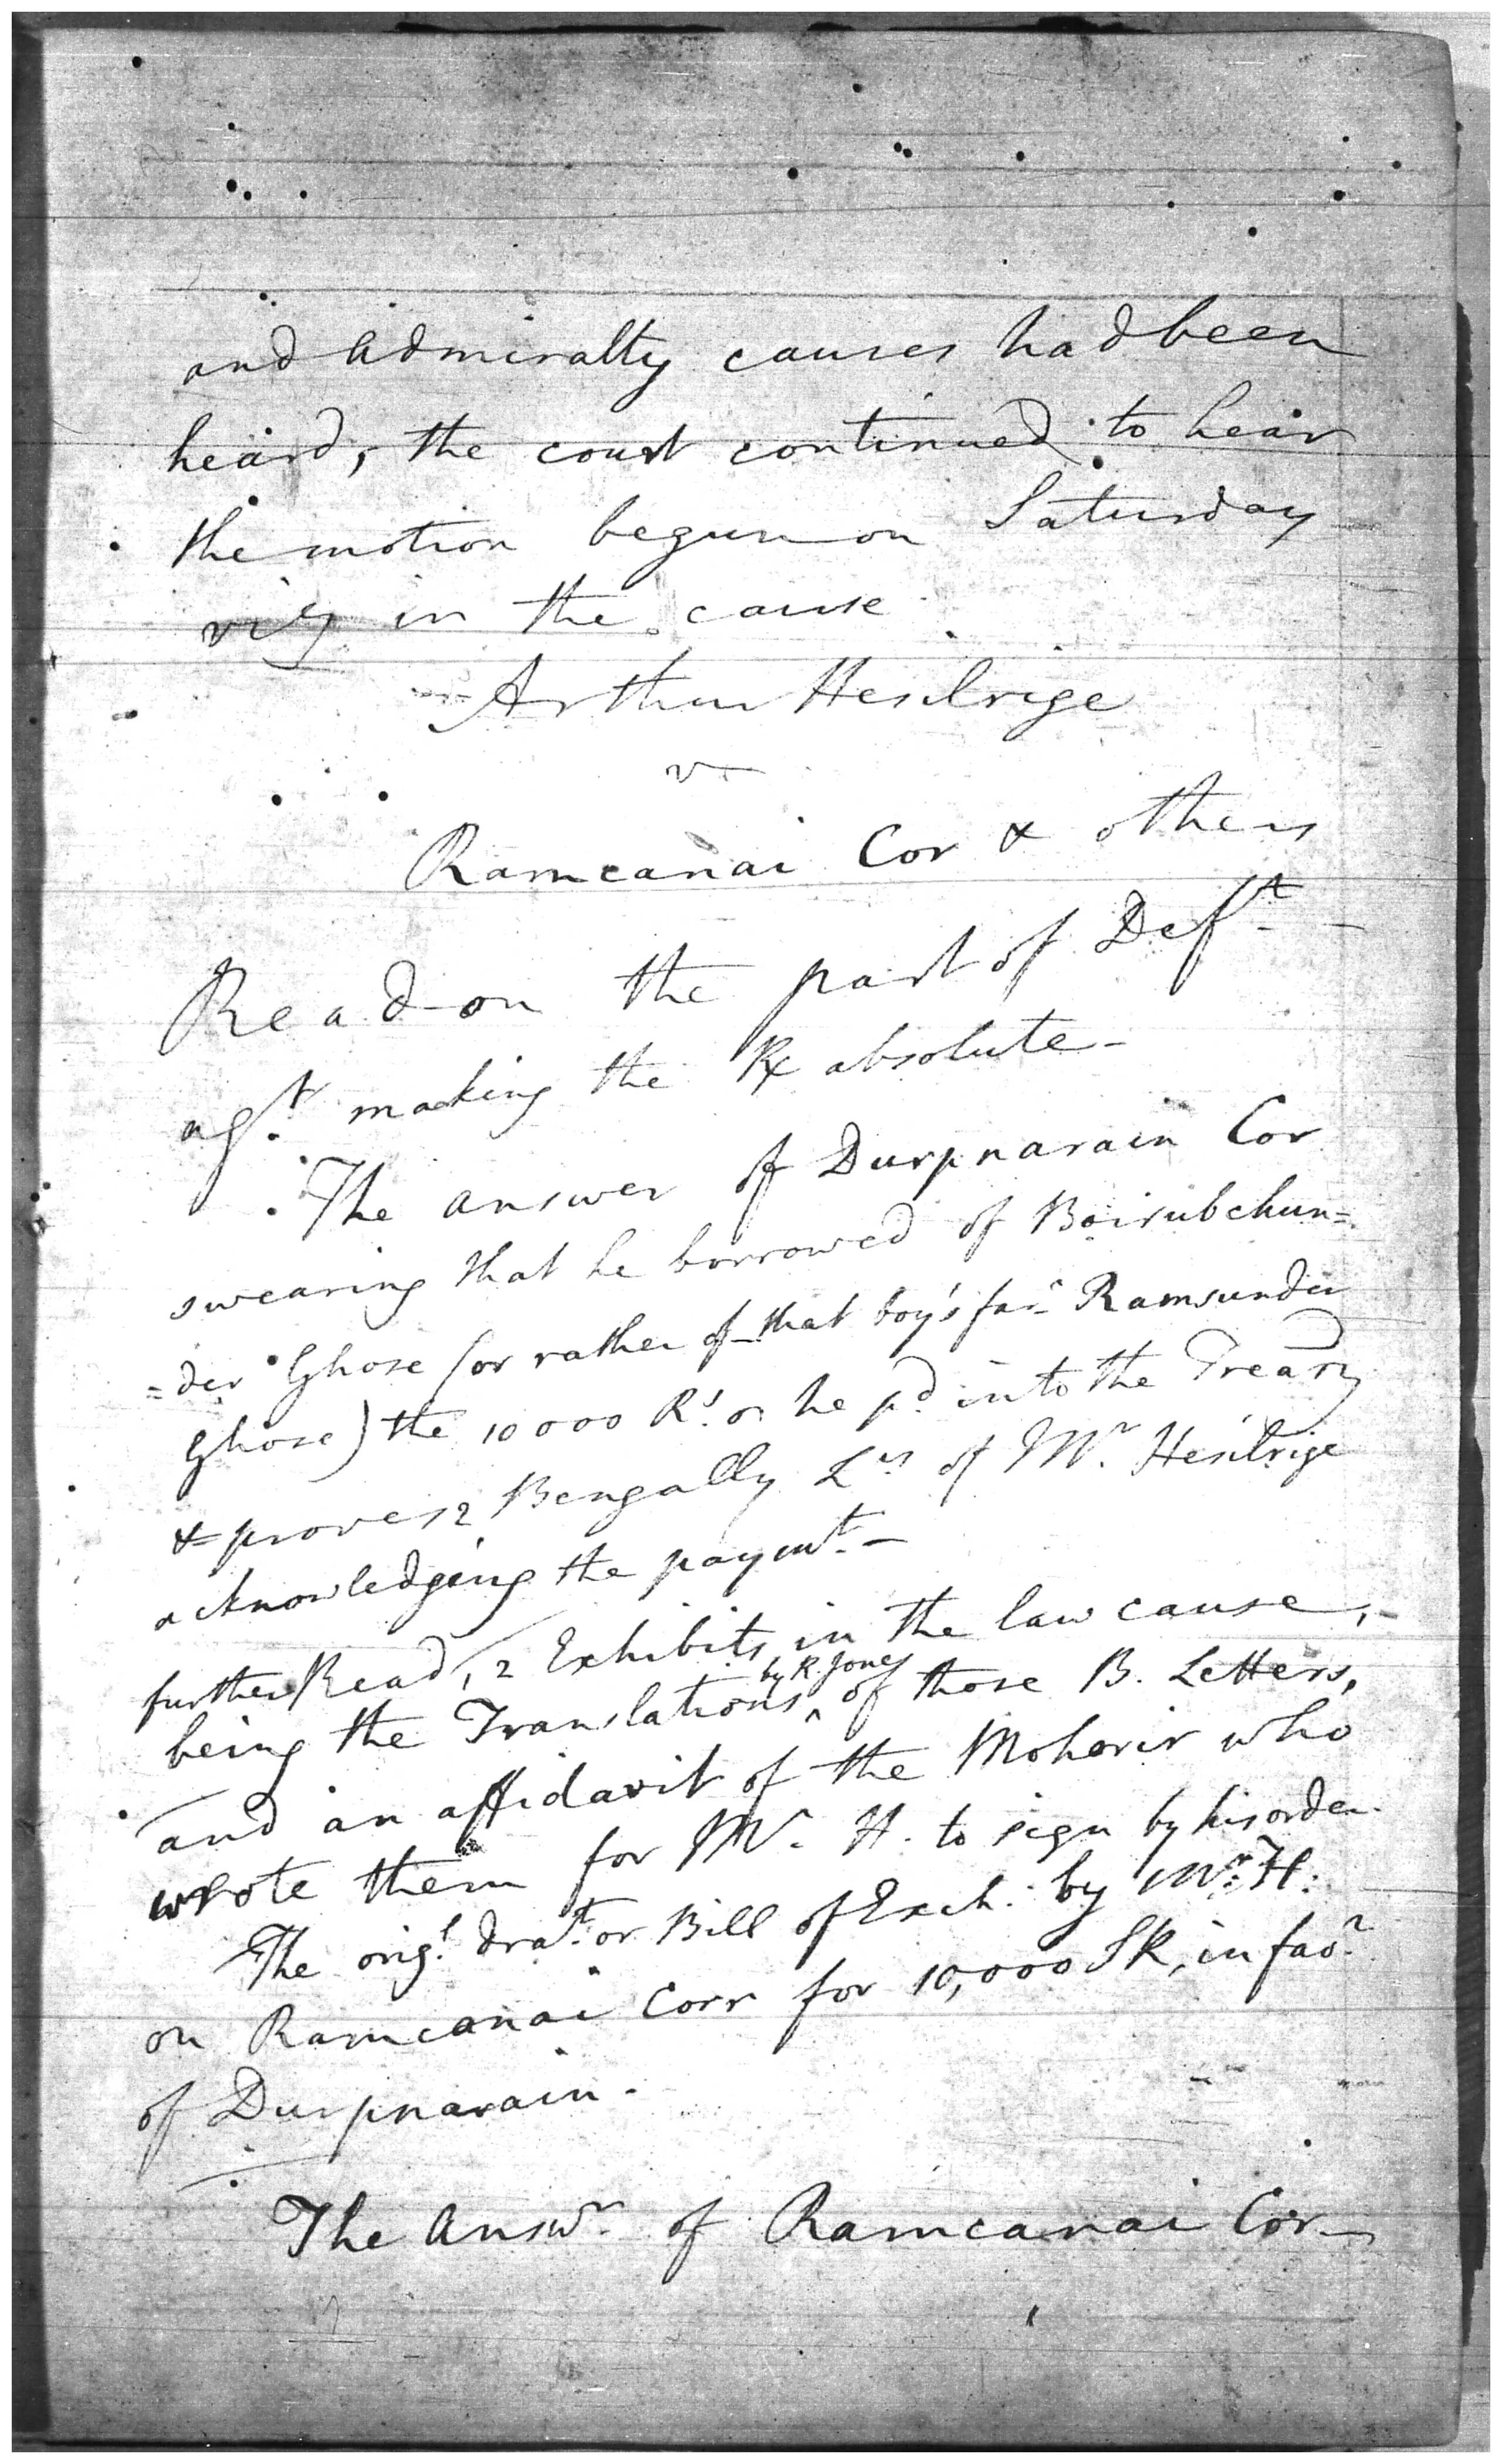 and Admiralty causes had been
heard, the court continued to hear
the motion begun on Saturday
viz in the cause
Arthur Hesilrige
v
Ramcanai Cor & others
Read on the part of Deft -
agt. making the Rx absolute -
The answer of Durpnarain Cor
swearing that he borrowed of Boirubchun=
=der Ghose (or rather of that boy's far Ramsunder
Ghose) the 10000 Rs. he pd. into the Treary
& proves 2 Bengally Lrs of Mr. Hesilrige
acknowledging the paymt. -
further Read, 2 Exhibits in the law cause,
being the Translations by R. Jones of those B. Letters,
and an affidavit of the Moherir who
wrote them for Mr. H. to sign by his order.
The origl. drat. or Bill of Exch. by Mr. H.
on Ramcanai Corr for 10,000 SR, in faor.
of Durpnarain.
The Answr. of Ramcanai Cor